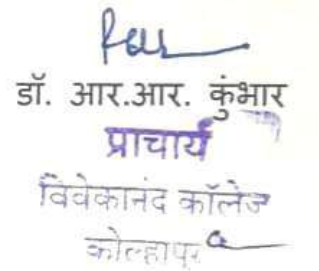 डॉ. आर.आर. कुंभार
प्राचार्य
विवेकानंद कॉलेज
कोल्हापूर